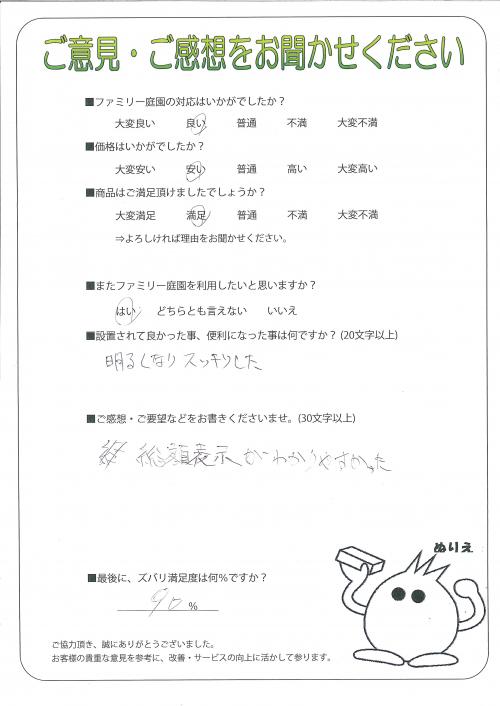 ご意見・ご感想をお聞かせください
■ファミリー庭園の対応はいかがでしたか？
大変良い 良い 普通 不満 大変不満
■価格はいかがでしたか？
大変安い 安い 普通 高い 大変高い
■商品はご満足頂けましたでしょうか？
大変満足 満足 普通 不満 大変不満
⇒よろしければ理由をお聞かせください。
■またファミリー庭園を利用したいと思いますか？
はい どちらとも言えない いいえ
■設置されて良かった事、便利になった事は何ですか？(20文字以上)
明るくなりスッキリした
■ご感想・ご要望などをお書きくださいませ。(30文字以上)
総額表示がわかりやすかった
ぬりえ
■最後に、ズバリ満足度は何%ですか？
90 %
ご協力頂き、誠にありがとうございました。
お客様の貴重な意見を参考に、改善・サービスの向上に活かして参ります。